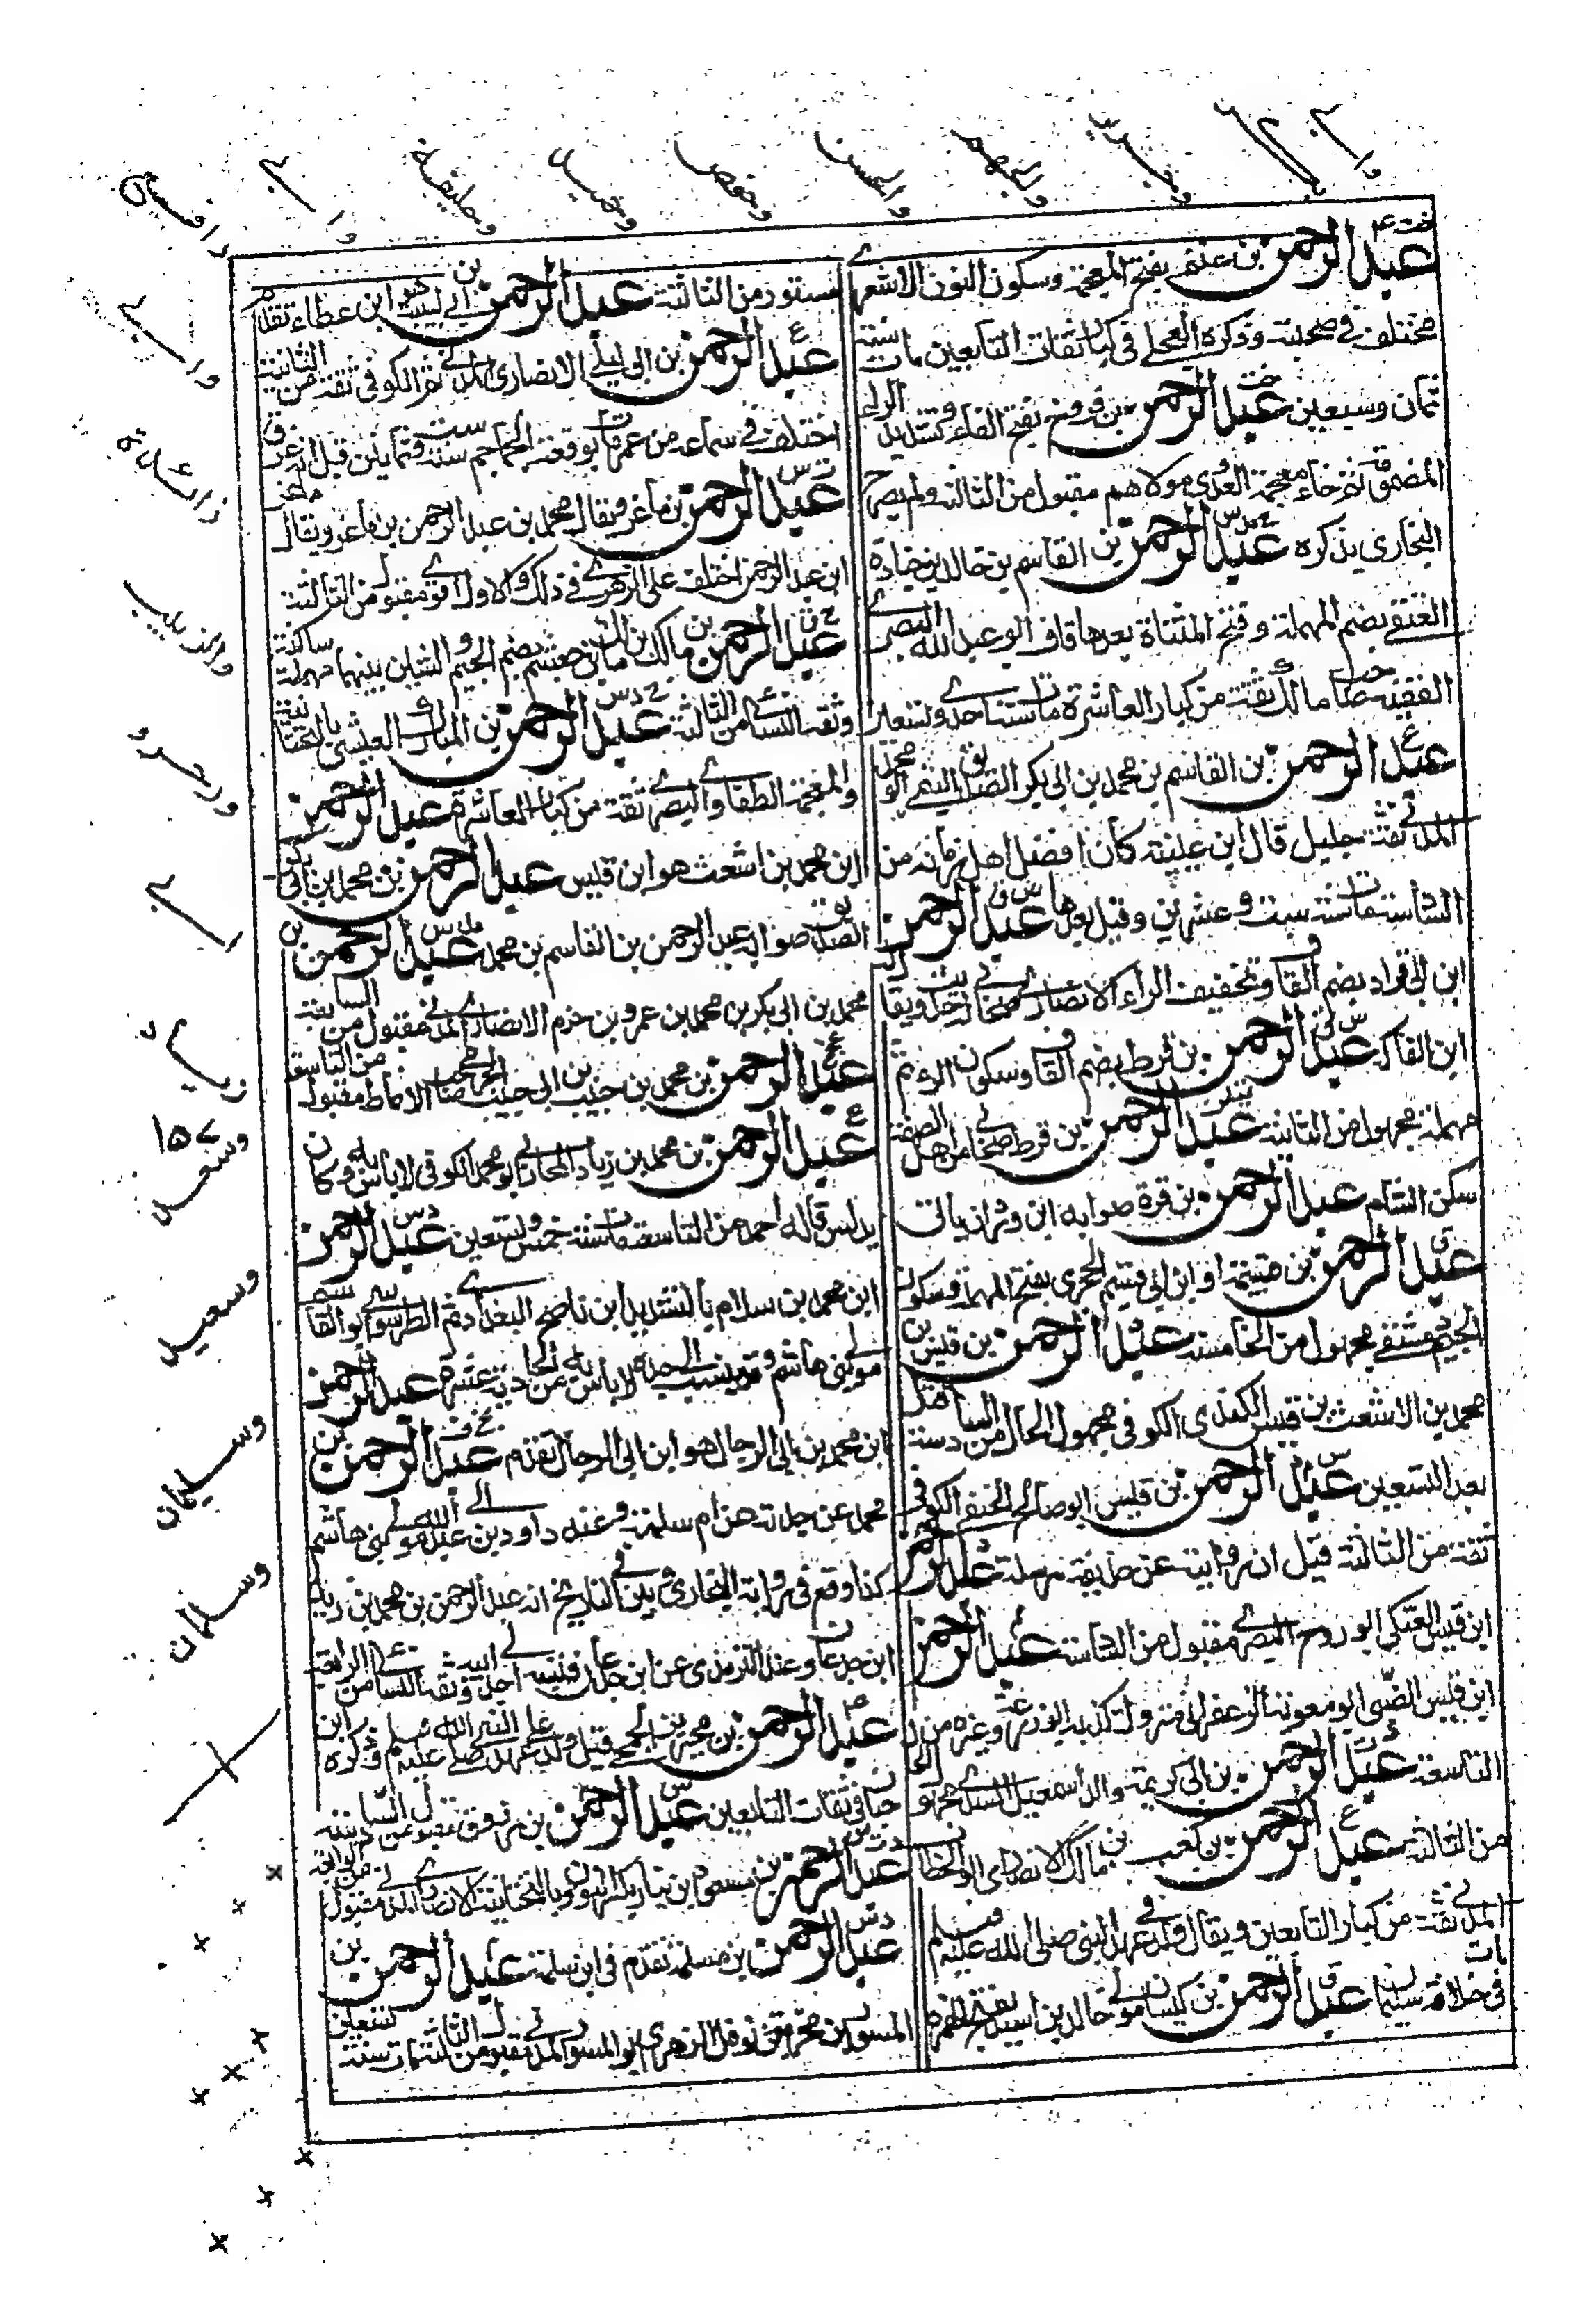 خت ۴
عبد الرحمن بن غنم بفتح المعجمة وسكون النون الاشعرے
مختلف فے صحبته وذكره العجلے فی كبار ثقات التابعين مات سنة
ثمان وسبعين عبد الرحمن بن فروخ بفتح الفاء وتشديد الراء
المضمومة ثم خاء معجمة العدوی مولاهم مقبول من الثالثة ولم يصرح
البخاری بذكره عبد الرحمن بن القاسم بن خالد بن جنادة
العتقے بضم المهملة وفتح المثناة بعدها قاف ابو عبد الله البصرے
الفقيه صاحب مالك ثقة من كبار العاشرة مات سنة احدے وتسعين
عبد الرحمن بن القاسم بن محمد بن ابی بكر الصديق التيمے ابو محمد
المدنے ثقة جليل قال ابن عيينة كان افضل اهل زمانه من
السادسة مات سنة ست وعشرين وقيل بعدها عبد الرحمن
ابن ابی قراد بضم القاف وتخفيف الراء الانصارے صحابے له حديث ويقال له
ابن الفاكه عبد الرحمن بن قرط بضم القاف وسكون الراء ثم
مهملة مجهول من الثانية عبد الرحمن بن قرط صحابے من اهل الصفة
سكن الشام عبد الرحمن بن قرة صوابه ابن وردان ياتی
عبد الرحمن بن قسيمة او ابن ابی قسيم الحجری بفتح المهملة وسكون
الجيم دمشقے مجهول من الخامسة عبد الرحمن بن قيس بن
محمد بن الاشعث بن قيس الكندی الكوفی مجهول الحال من السادسة قتل
بعد التسعين عبد الرحمن بن قيس ابو صالح الحنفے الكوفی
ثقة من الثالثة قيل ان روايته عن حذيفة مرسلة عبد الرحمن
ابن قيس العتكی ابو روح البصرے مقبول من السادسة عبد الرحمن
ابن قيس الضبی ابو معوية الزعفرانی متروك كذبه ابو زرعة وغيره من
التاسعة عبد الرحمن بن ابی كريمة والد اسمعيل السدے مجهول الحال
من الثالثة عبد الرحمن بن كعب بن مالك الانصاری ابو الخطاب
المدنے ثقة من كبار التابعين ويقال ولد فی عهد النبی صلی الله عليه وسلم مات
فی خلافة سليمان عبد الرحمن بن كيسان مولے خالد بن اسيد بفتح الهمزة
مستور من الثالثة عبد الرحمن بن ابی لبيبة هو ابن عطاء تقدم
عبد الرحمن بن ابی ليلے الانصاری المدنے ثم الكوفی ثقة من الثانية
اختلف فے سماعه من عمر مات بوقعة الجماجم سنة ست وثمانين قيل انه غرق
عبد الرحمن بن ماعز ويقال محمد بن عبد الرحمن بن ماعز ويقال ماعز
ابن عبد الرحمن اختلف علی الزهرے فے ذلك والاول اقوے مقبول من الثالثة
عبد الرحمن بن مالك بن مالك بن جعشم بضم الجيم والشين بينهما مهملة ساكنة
وثقه النسائے من الثالثة عبد الرحمن بن المبارك العيشی بالتحتانية
والمعجمة الطفاوے البصرے ثقة من كبار العاشرة عبد الرحمن
ابن محمد بن اشعث هو ابن قيس عبد الرحمن بن محمد بن ابی بكر
الصديق صوابه عبد الرحمن بن القاسم بن محمد عبد الرحمن بن
محمد بن ابی بكر بن محمد بن عمرو بن حزم الانصارے المدنے مقبول من السابعة
عبد الرحمن بن محمد بن حبيب بن ابی حبيب الجرمی صاحب الانماط مقبول من التاسعة
عبد الرحمن بن محمد بن زياد المحاربے ابو محمد الكوفی لا باس به وكان
يدلس قاله احمد من التاسعة مات سنة خمس وتسعين عبد الرحمن
ابن محمد بن سلام بالتشديد ابن ناصح البغدادے ثم الطرسوسے ابو القاسم
مولے بنی هاشم وقد ينسب الے جده لا باس به من الحادية عشرة عبد الرحمن
ابن محمد بن ابی الرجال هو ابن ابی الرجال تقدم عبد الرحمن بن
محمد عن جدته عن ام سلمة وعنه داود بن ابی عبد الله مولے بنی هاشم
كذا وقع فی رواية البخاری وبين فے التاريخ انه عبد الرحمن بن محمد بن زيد
ابن جدعان وعند الترمذی عن ابن جدعان فنسبه الے جد ابيه وثقه النسائے من الرابعة
عبد الرحمن بن محيريز الجمحے قيل ولد علی عهد النبے صلے الله عليه وسلم وذكره ابن
حبان فی ثقات التابعين عبد الرحمن بن مرزوق مقبول من السادسة
عبد الرحمن بن مسعود بن نيار بكسر النون وبالتحتانية الانصارے المدنے مقبول من الرابعة
عبد الرحمن بن مسلمة تقدم فی ابن سلمة عبد الرحمن بن
المسور بن مخرمة بن نوفل الزهری ابو المسور المدنے مقبول من الثالثة مات سنة تسعين
وسعد
وسعيد
وسليمان
وسلمان